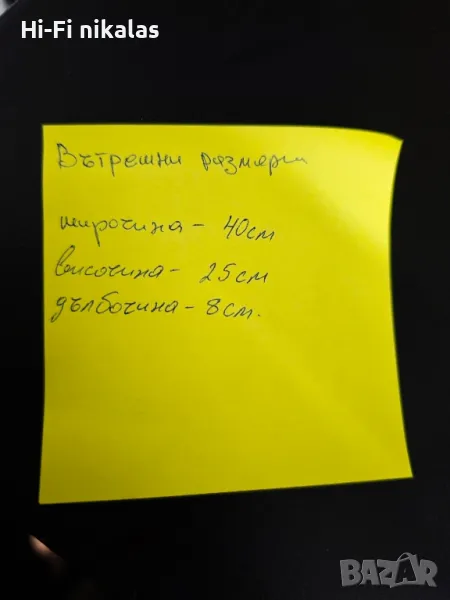 Hi-Fi nikalas
Вътрешни размери
широчина - 40см
височина - 25см
дълбочина - 8см.
BAZAR